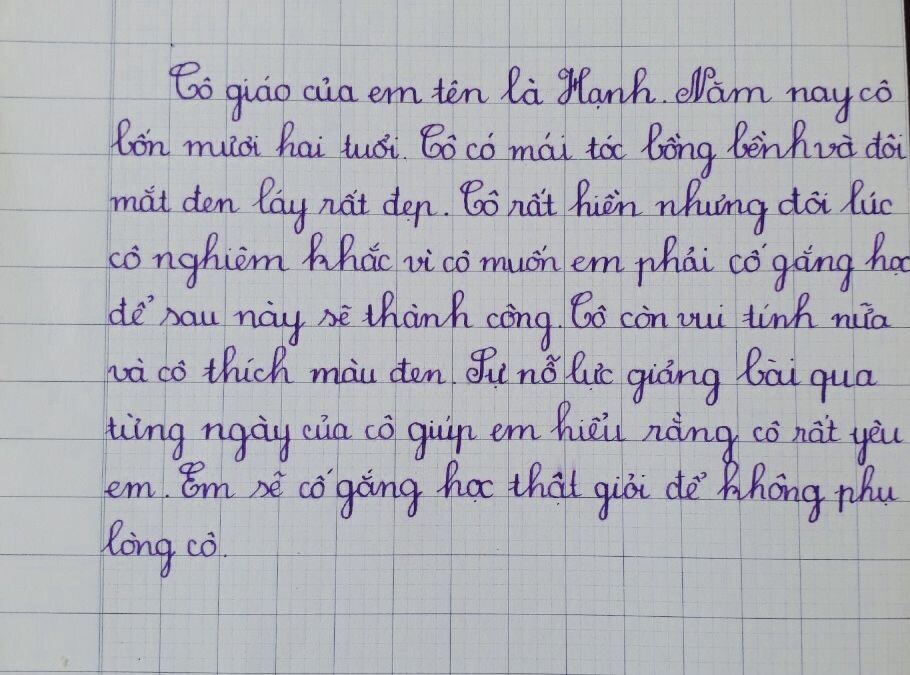 Cô giáo của em tên là Hạnh. Năm nay cô
bốn mươi hai tuổi. Cô có mái tóc bồng bềnh và đôi
mắt đen láy rất đẹp. Cô rất hiền nhưng đôi lúc
cô nghiêm khắc vì cô muốn em phải cố gắng học
để sau này sẽ thành công. Cô còn vui tính nữa
và cô thích màu đen. Sự nỗ lực giảng bài qua
từng ngày của cô giúp em hiểu rằng cô rất yêu
em. Em sẽ cố gắng học thật giỏi để không phụ
lòng cô.